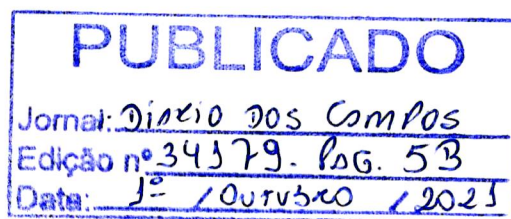 PUBLICADO
Jornal: Diário dos Campos
Edição nº 34179. Pág. 5B
Data: 1º / Outubro / 2021